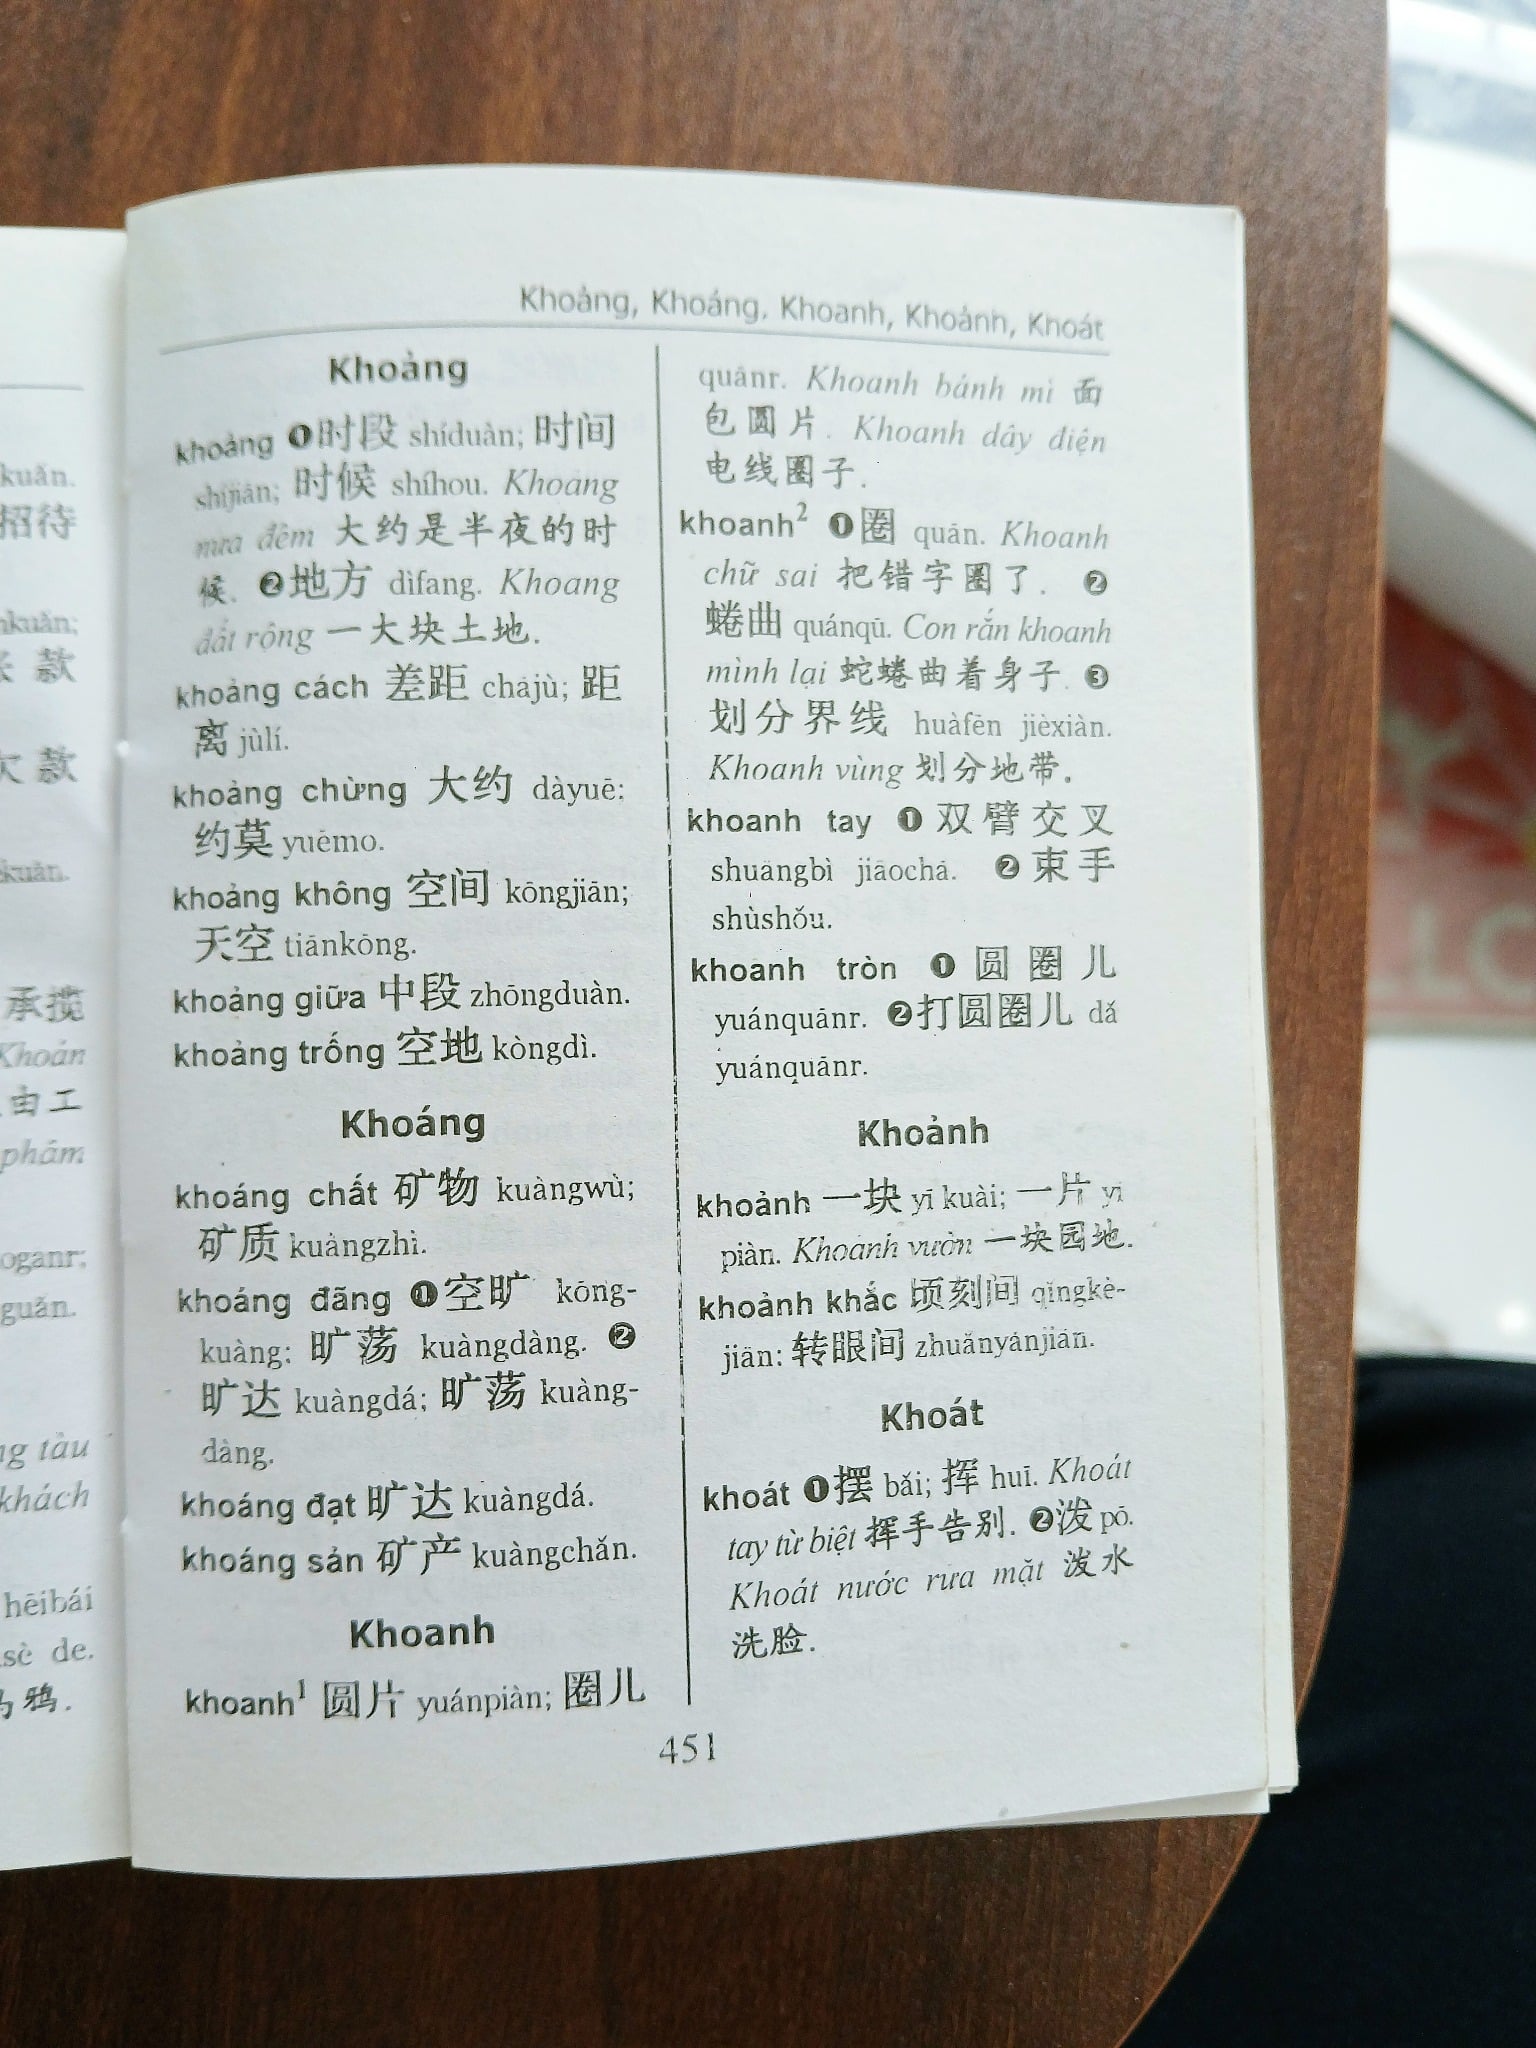 kuǎn.
招待
款
款
承揽
Khoán
由工
phẩm
guǎn.
ng tàu
khách
hēibái
sè de.
鸦.
Khoảng, Khoáng, Khoanh, Khoảnh, Khoát
Khoảng
khoảng ❶时段 shíduàn; 时间
shíjiān; 时候 shíhou. Khoảng
nửa đêm 大约是半夜的时
候. ❷地方 dìfang. Khoảng
đất rộng 一大块土地.
khoảng cách 差距 chājù; 距
离 jùlí.
khoảng chừng 大约 dàyuē;
约莫 yuēmo.
khoảng không 空间 kōngjiān;
天空 tiānkōng.
khoảng giữa 中段 zhōngduàn.
khoảng trống 空地 kòngdì.
Khoáng
khoáng chất 矿物 kuàngwù;
矿质 kuàngzhì.
khoáng đãng ❶空旷 kōng-
kuàng; 旷荡 kuàngdàng. ❷
旷达 kuàngdá; 旷荡 kuàng-
dàng.
khoáng đạt 旷达 kuàngdá.
khoáng sản 矿产 kuàngchǎn.
Khoanh
khoanh¹ 圆片 yuánpiàn; 圈儿
quānr. Khoanh bánh mì 面
包圆片. Khoanh dây điện
电线圈子.
khoanh² ❶圈 quān. Khoanh
chữ sai 把错字圈了. ❷
蜷曲 quánqū. Con rắn khoanh
mình lại 蛇蜷曲着身子. ❸
划分界线 huàfēn jièxiàn.
Khoanh vùng 划分地带.
khoanh tay ❶双臂交叉
shuāngbì jiāochā. ❷束手
shùshǒu.
khoanh tròn ❶圆圈儿
yuánquānr. ❷打圆圈儿 dǎ
yuánquānr.
Khoảnh
khoảnh 一块 yī kuài; 一片 yī
piàn. Khoảnh vườn 一块园地.
khoảnh khắc 顷刻间 qǐngkè-
jiān; 转眼间 zhuǎnyǎnjiān.
Khoát
khoát ❶摆 bǎi; 挥 huī. Khoát
tay từ biệt 挥手告别. ❷泼 pō.
Khoát nước rửa mặt 泼水
洗脸.
451